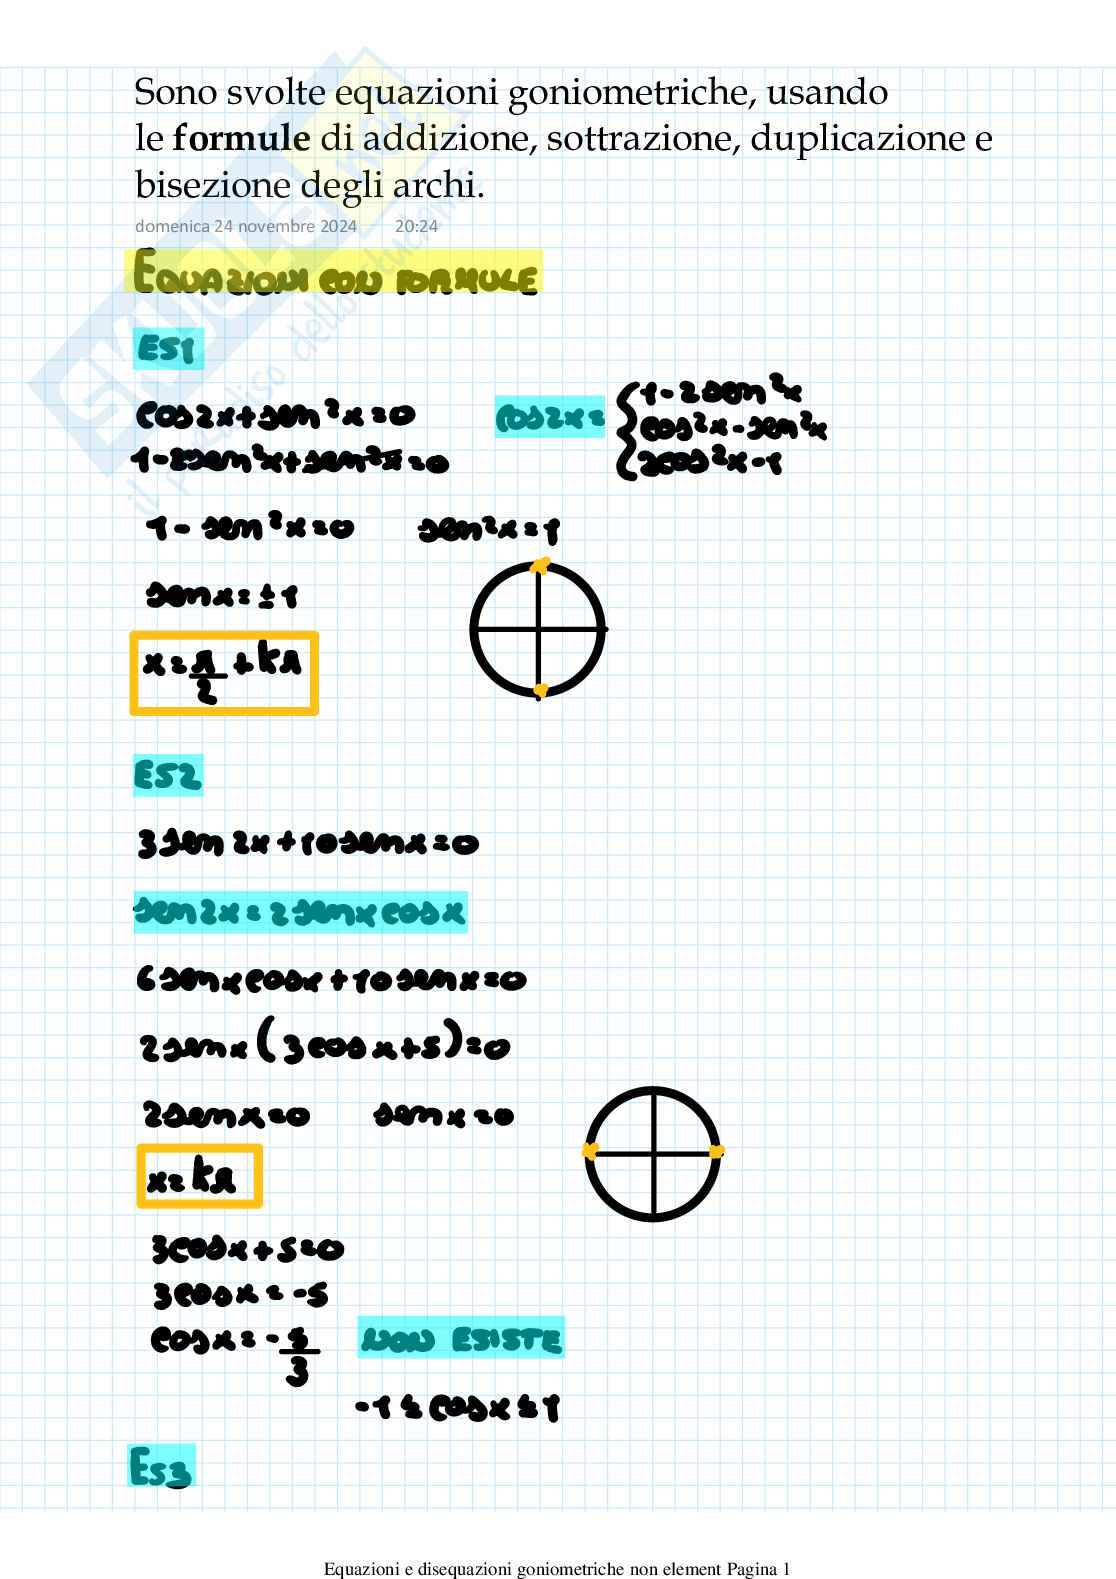 Sono svolte equazioni goniometriche, usando
le formule di addizione, sottrazione, duplicazione e
bisezione degli archi.
domenica 24 novembre 2024 20:24
EQUAZIONI CON FORMULE
ES1
cos2x+sen²x=0 cos2x= { 1-2sen²x
cos²x-sen²x
2cos²x-1
1-2sen²x+sen²x=0
1-sen²x=0 sen²x=1
senx=±1
x=π/2+kπ
ES2
3sen2x+10senx=0
sen2x=2senxcosx
6senxcosx+10senx=0
2senx(3cosx+5)=0
2senx=0 senx=0
x=kπ
3cosx+5=0
3cosx=-5
cosx=-5/3 NON ESISTE
-1≤cosx≤1
Es3
Equazioni e disequazioni goniometriche non element Pagina 1
SKUOLA.net
il paradiso dello studente